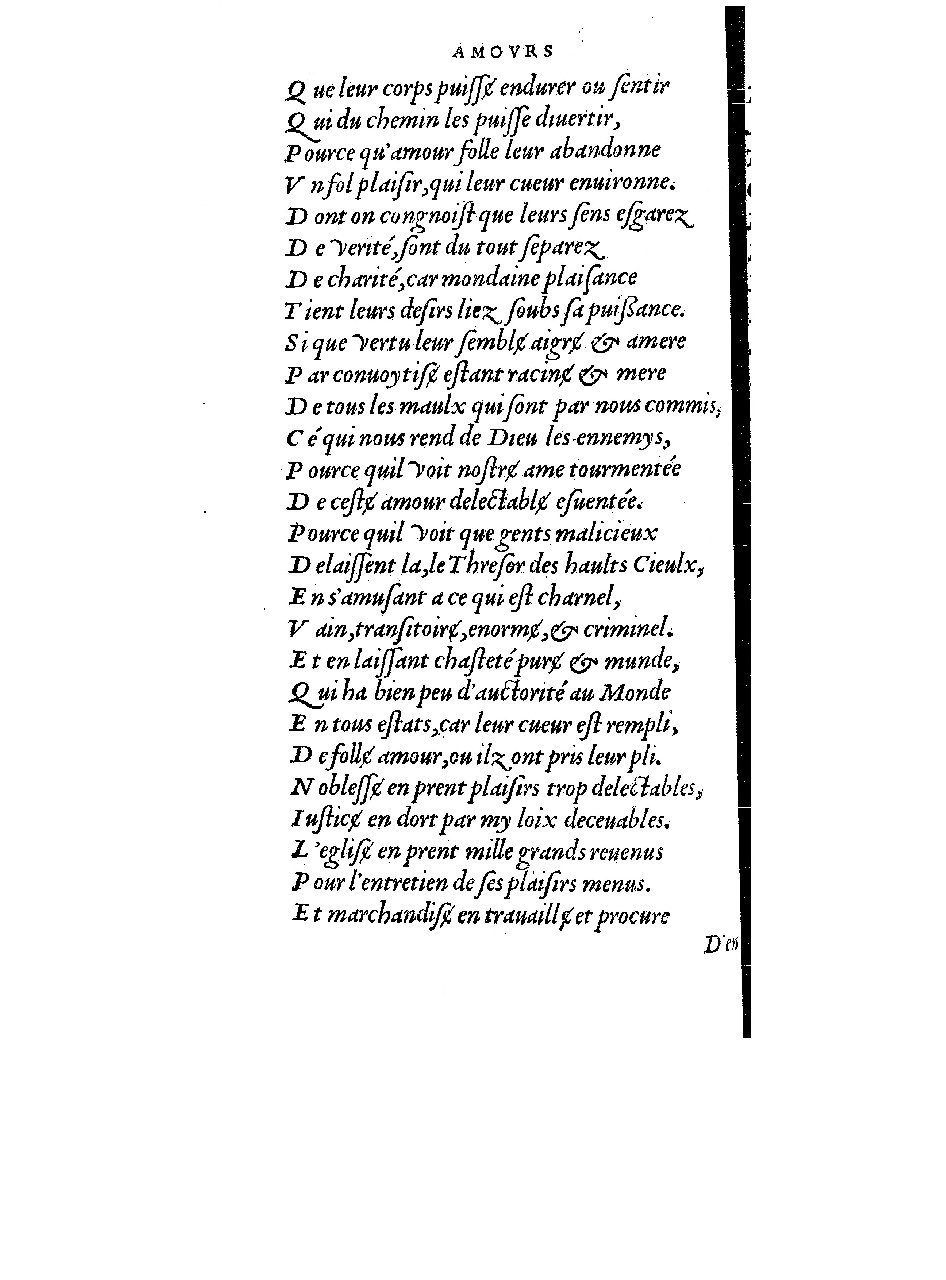 AMOVRS
Que leur corps puiſſɇ endurer ou ſentir
Qui du chemin les puiſſe diuertir,
Pource qu'amour folle leur abandonne
Vn fol plaiſir, qui leur cueur enuironne.
Dont on congnoiſt que leurs ſens eſgarez
De verité, ſont du tout ſeparez
De charité, car mondaine plaiſance
Tient leurs deſirs liez ſoubs ſa puiſſance.
Si que vertu leur ſemblɇ aigrɇ & amere
Par conuoytiſɇ eſtant racinɇ & mere
De tous les maulx qui ſont par nous commis,
Cé qui nous rend de Dieu les ennemys,
Pource quil voit noſtrɇ ame tourmentée
De ceſtɇ amour delectablɇ eſuentée.
Pource quil voit que gents malicieux
Delaiſſent la, le Threſor des haults Cieulx,
En s'amuſant a ce qui eſt charnel,
Vain, tranſitoirɇ, enormɇ, & criminel.
Et en laiſſant chaſteté purɇ & munde,
Qui ha bien peu d'auctorité au Monde
En tous eſtats, car leur cueur eſt rempli,
De follɇ amour, ou ilz ont pris leur pli.
Nobleſſɇ en prent plaiſirs trop delectables,
Iuſticɇ en dort par my loix deceuables.
L'egliſɇ en prent mille grands reuenus
Pour l'entretien de ſes plaiſirs menus.
Et marchandiſɇ en trauaillɇ et procure
D'en